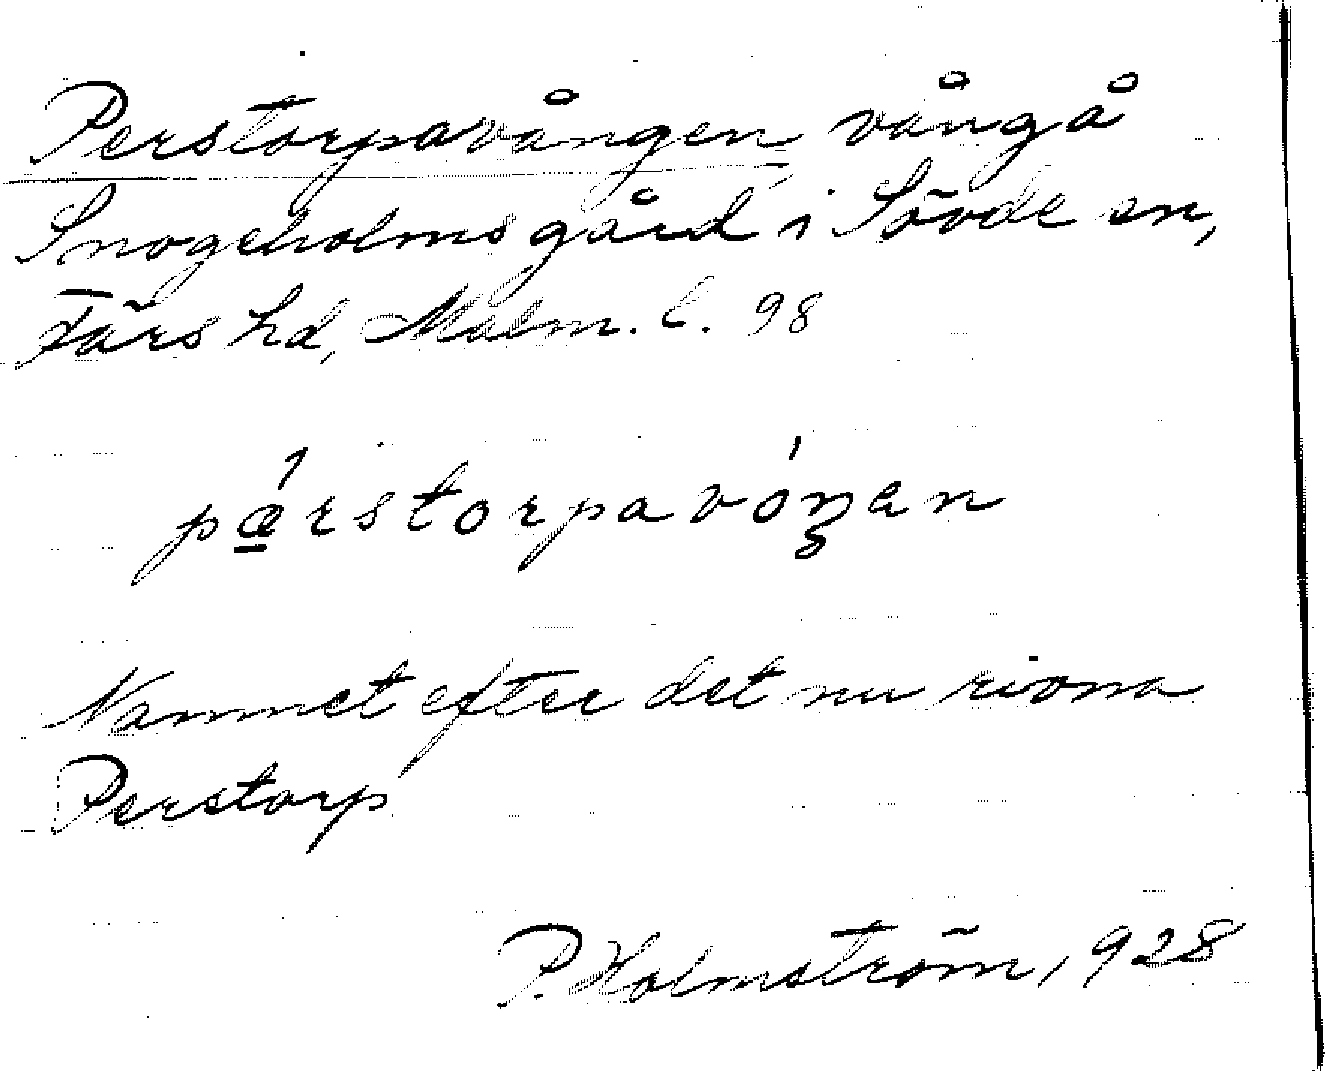 Perstorpavången, vång å
Snogeholms gård i Sövde sn,
Färs hd, Malm. l. 98
pǽrstorpavóŋen
Namnet efter det nu rivna
Perstorp
P. Holmström, 1928